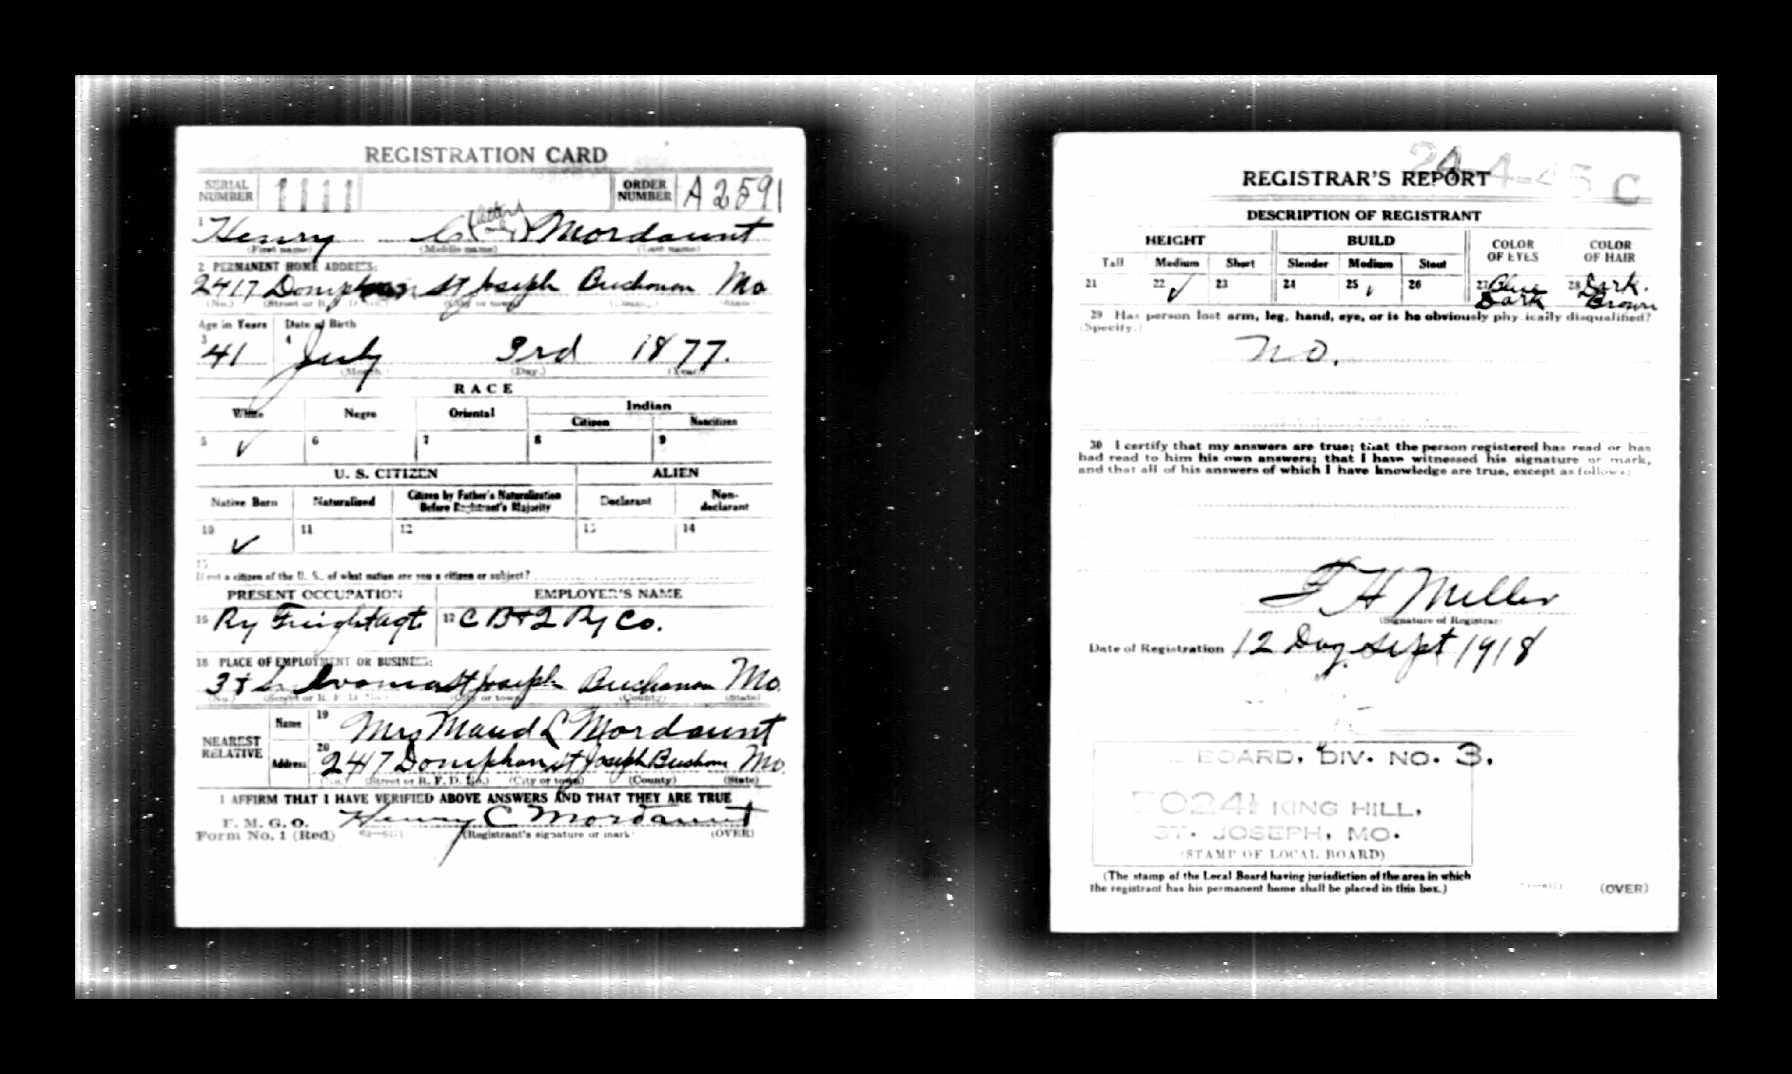 REGISTRATION CARD
SERIAL NUMBER 1111 ORDER NUMBER A2591
1 Henry C (letter only) Mordaunt
(First name) (Middle name) (Last name)
2 PERMANENT HOME ADDRESS:
2417 Doniphan St Joseph Buchanan Mo
(No.) (Street or R. F. D. No.) (City or town) (County) (State)
Age in Years Date of Birth
3 41 4 July 3rd 1877.
(Month.) (Day.) (Year.)
RACE
White Negro Oriental Indian
Citizen Noncitizen
5 ✓ 6 7 8 9
U. S. CITIZEN ALIEN
Native Born Naturalized Citizen by Father's Naturalization Before Registrant's Majority Declarant Non-declarant
10 ✓ 11 12 13 14
15
If not a citizen of the U. S., of what nation are you a citizen or subject?
PRESENT OCCUPATION EMPLOYER'S NAME
16 Ry Freight agt 17 C B + Q Ry Co.
18 PLACE OF EMPLOYMENT OR BUSINESS:
3 + St Joseph Buchanan Mo.
(No.) (Street or R. F. D. No.) (City or town) (County) (State)
NEAREST RELATIVE
Name 19 Mrs Maud L Mordaunt
Address 20 2417 Doniphan St Joseph Buchanan Mo.
(No.) (Street or R. F. D. No.) (City or town) (County) (State)
I AFFIRM THAT I HAVE VERIFIED ABOVE ANSWERS AND THAT THEY ARE TRUE
P. M. G. O.
Form No. 1 (Red) Henry C Mordaunt
(Registrant's signature or mark) (OVER)
24-4-45 C
REGISTRAR'S REPORT
DESCRIPTION OF REGISTRANT
HEIGHT BUILD COLOR OF EYES COLOR OF HAIR
Tall Medium Short Slender Medium Stout
21 22 ✓ 23 24 25 ✓ 26 27 Blue Dark 28 Dark. Brown
29 Has person lost arm, leg, hand, eye, or is he obviously physically disqualified?
(Specify.)
No.
30 I certify that my answers are true; that the person registered has read or has
had read to him his own answers; that I have witnessed his signature or mark,
and that all of his answers of which I have knowledge are true, except as follows:
F H Miller
(Signature of Registrar)
Date of Registration 12 Day Sept 1918
BOARD, DIV. NO. 3.
5024½ KING HILL,
ST. JOSEPH, MO.
(STAMP OF LOCAL BOARD)
(The stamp of the Local Board having jurisdiction of the area in which
the registrant has his permanent home shall be placed in this box.)
(OVER)